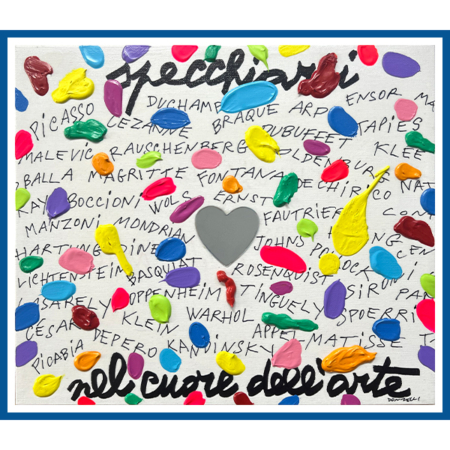 specchiarsi
ENSOR MA
DUCHAMP
PICASSO CEZANNE BRAQUE ARP DUBUFFET TAPIES
MALEVIC RAUSCHENBERG OLDENBURG KLEE
BALLA MAGRITTE FONTANA DE CHIRICO
KAY BOCCIONI WOLS ERNST FAUTRIER
MANZONI MONDRIAN
HARTUNG DINE JOHNS
LICHTENSTEIN BASQUIAT ROSENQUIST
OPPENHEIM TINGUELY
CESAR KLEIN WARHOL APPEL SPOERRI
PICABIA DEPERO KANDINSKY MATISSE
nel cuore dell'arte